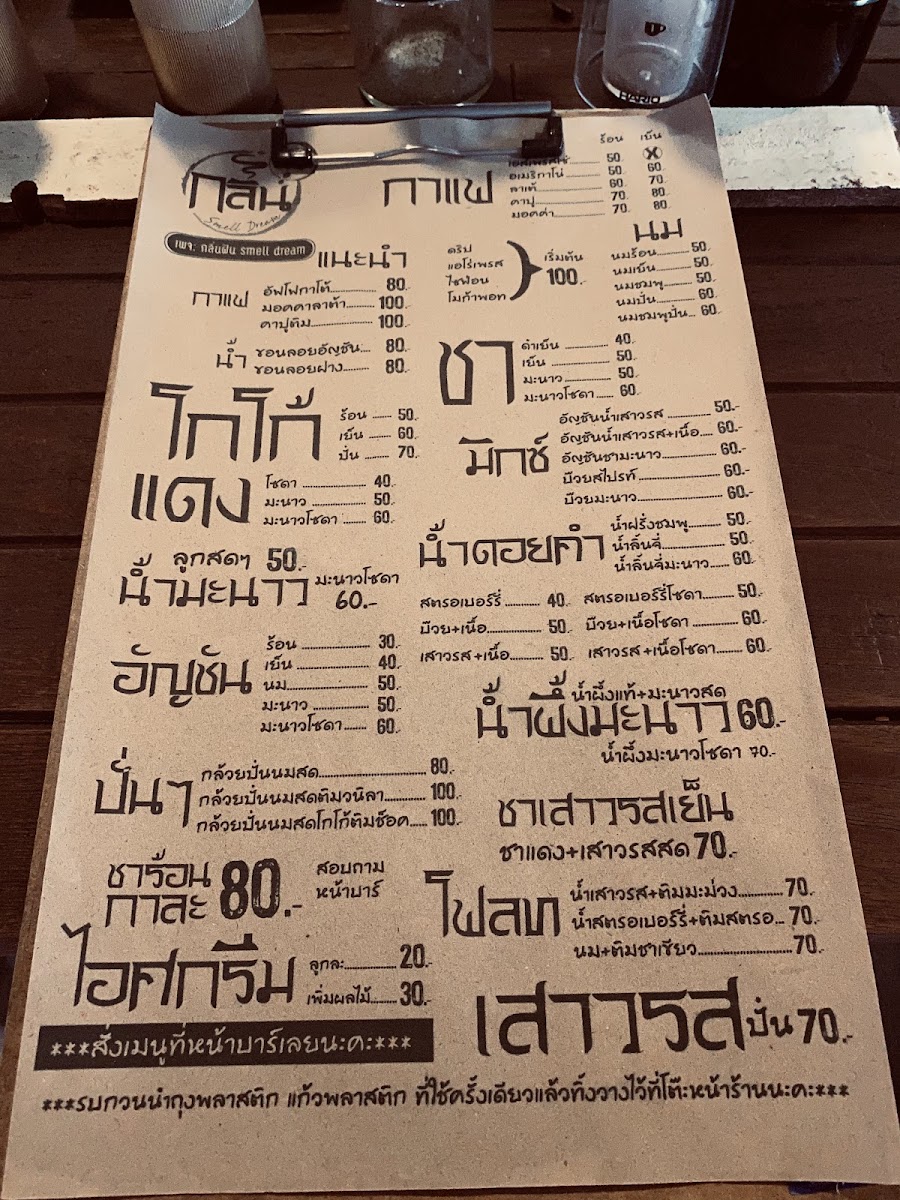 กลิ่น
Smell Dream
เพจ: กลิ่นฝัน smell dream
กาแฟ
ร้อน เย็น
เอสเพรสโซ่ 50.
อเมริกาโน่ 50. 60.
ลาเต้ 60. 70.
คาปู 70. 80.
มอคค่า 70. 80.
แนะนำ
กาแฟ
อัฟโฟกาโต้ 80.-
มอคคาลาต้า 100.-
คาปูติม 100.-
ดริป
แอโร่เพรส
ไซฟ่อน
โมก้าพอท
เริ่มต้น
100.-
นม
นมร้อน 50.-
นมเย็น 50.-
นมชมพู 50.-
นมปั่น 60.-
นมชมพูปั่น 60.-
น้ำ
ขอนลอยอัญชัน 80.-
ขอนลอยฝาง 80.-
ชา
ดำเย็น 40.
เย็น 50.
มะนาว 50.-
มะนาวโซดา 60.-
โกโก้
ร้อน 50.-
เย็น 60.-
ปั่น 70.-
มิกซ์
อัญชันน้ำเสาวรส 50.-
อัญชันน้ำเสาวรส+เนื้อ 60.-
อัญชันชามะนาว 60.-
บ๊วยสไปรท์ 60.-
บ๊วยมะนาว 60.-
แดง
โซดา 40.-
มะนาว 50.-
มะนาวโซดา 60.-
น้ำดอยคำ
น้ำฝรั่งชมพู 50.-
น้ำลิ้นจี่ 50.-
น้ำลิ้นจี่มะนาว 60.-
ลูกสดๆ 50.-
น้ำมะนาว
มะนาวโซดา
60.-
สตรอเบอร์รี่ 40.
บ๊วย+เนื้อ 50.
เสาวรส+เนื้อ 50.
สตรอเบอร์รี่โซดา 50.-
บ๊วย+เนื้อโซดา 60.-
เสาวรส+เนื้อโซดา 60.-
อัญชัน
ร้อน 30.-
เย็น 40.-
นม 50.-
มะนาว 50.-
มะนาวโซดา 60.-
น้ำผึ้งแท้+มะนาวสด
น้ำผึ้งมะนาว 60.-
น้ำผึ้งมะนาวโซดา 70.-
ปั่นๆ
กล้วยปั่นนมสด 80.-
กล้วยปั่นนมสดติมวนิลา 100.-
กล้วยปั่นนมสดโกโก้ติมช็อค 100.-
ชาเสาวรสเย็น
ชาแดง+เสาวรสสด 70.-
ชาร้อน
กาละ 80.-
สอบถาม
หน้าบาร์
โฟลท
น้ำเสาวรส+ติมมะม่วง 70.-
น้ำสตรอเบอร์รี่+ติมสตรอ 70.-
นม+ติมชาเขียว 70.-
ไอศกรีม
ลูกละ 20.-
เพิ่มผลไม้ 30.-
เสาวรส ปั่น 70.-
***สั่งเมนูที่หน้าบาร์เลยนะคะ***
***รบกวนนำถุงพลาสติก แก้วพลาสติก ที่ใช้ครั้งเดียวแล้วทิ้งวางไว้ที่โต๊ะหน้าร้านนะคะ***